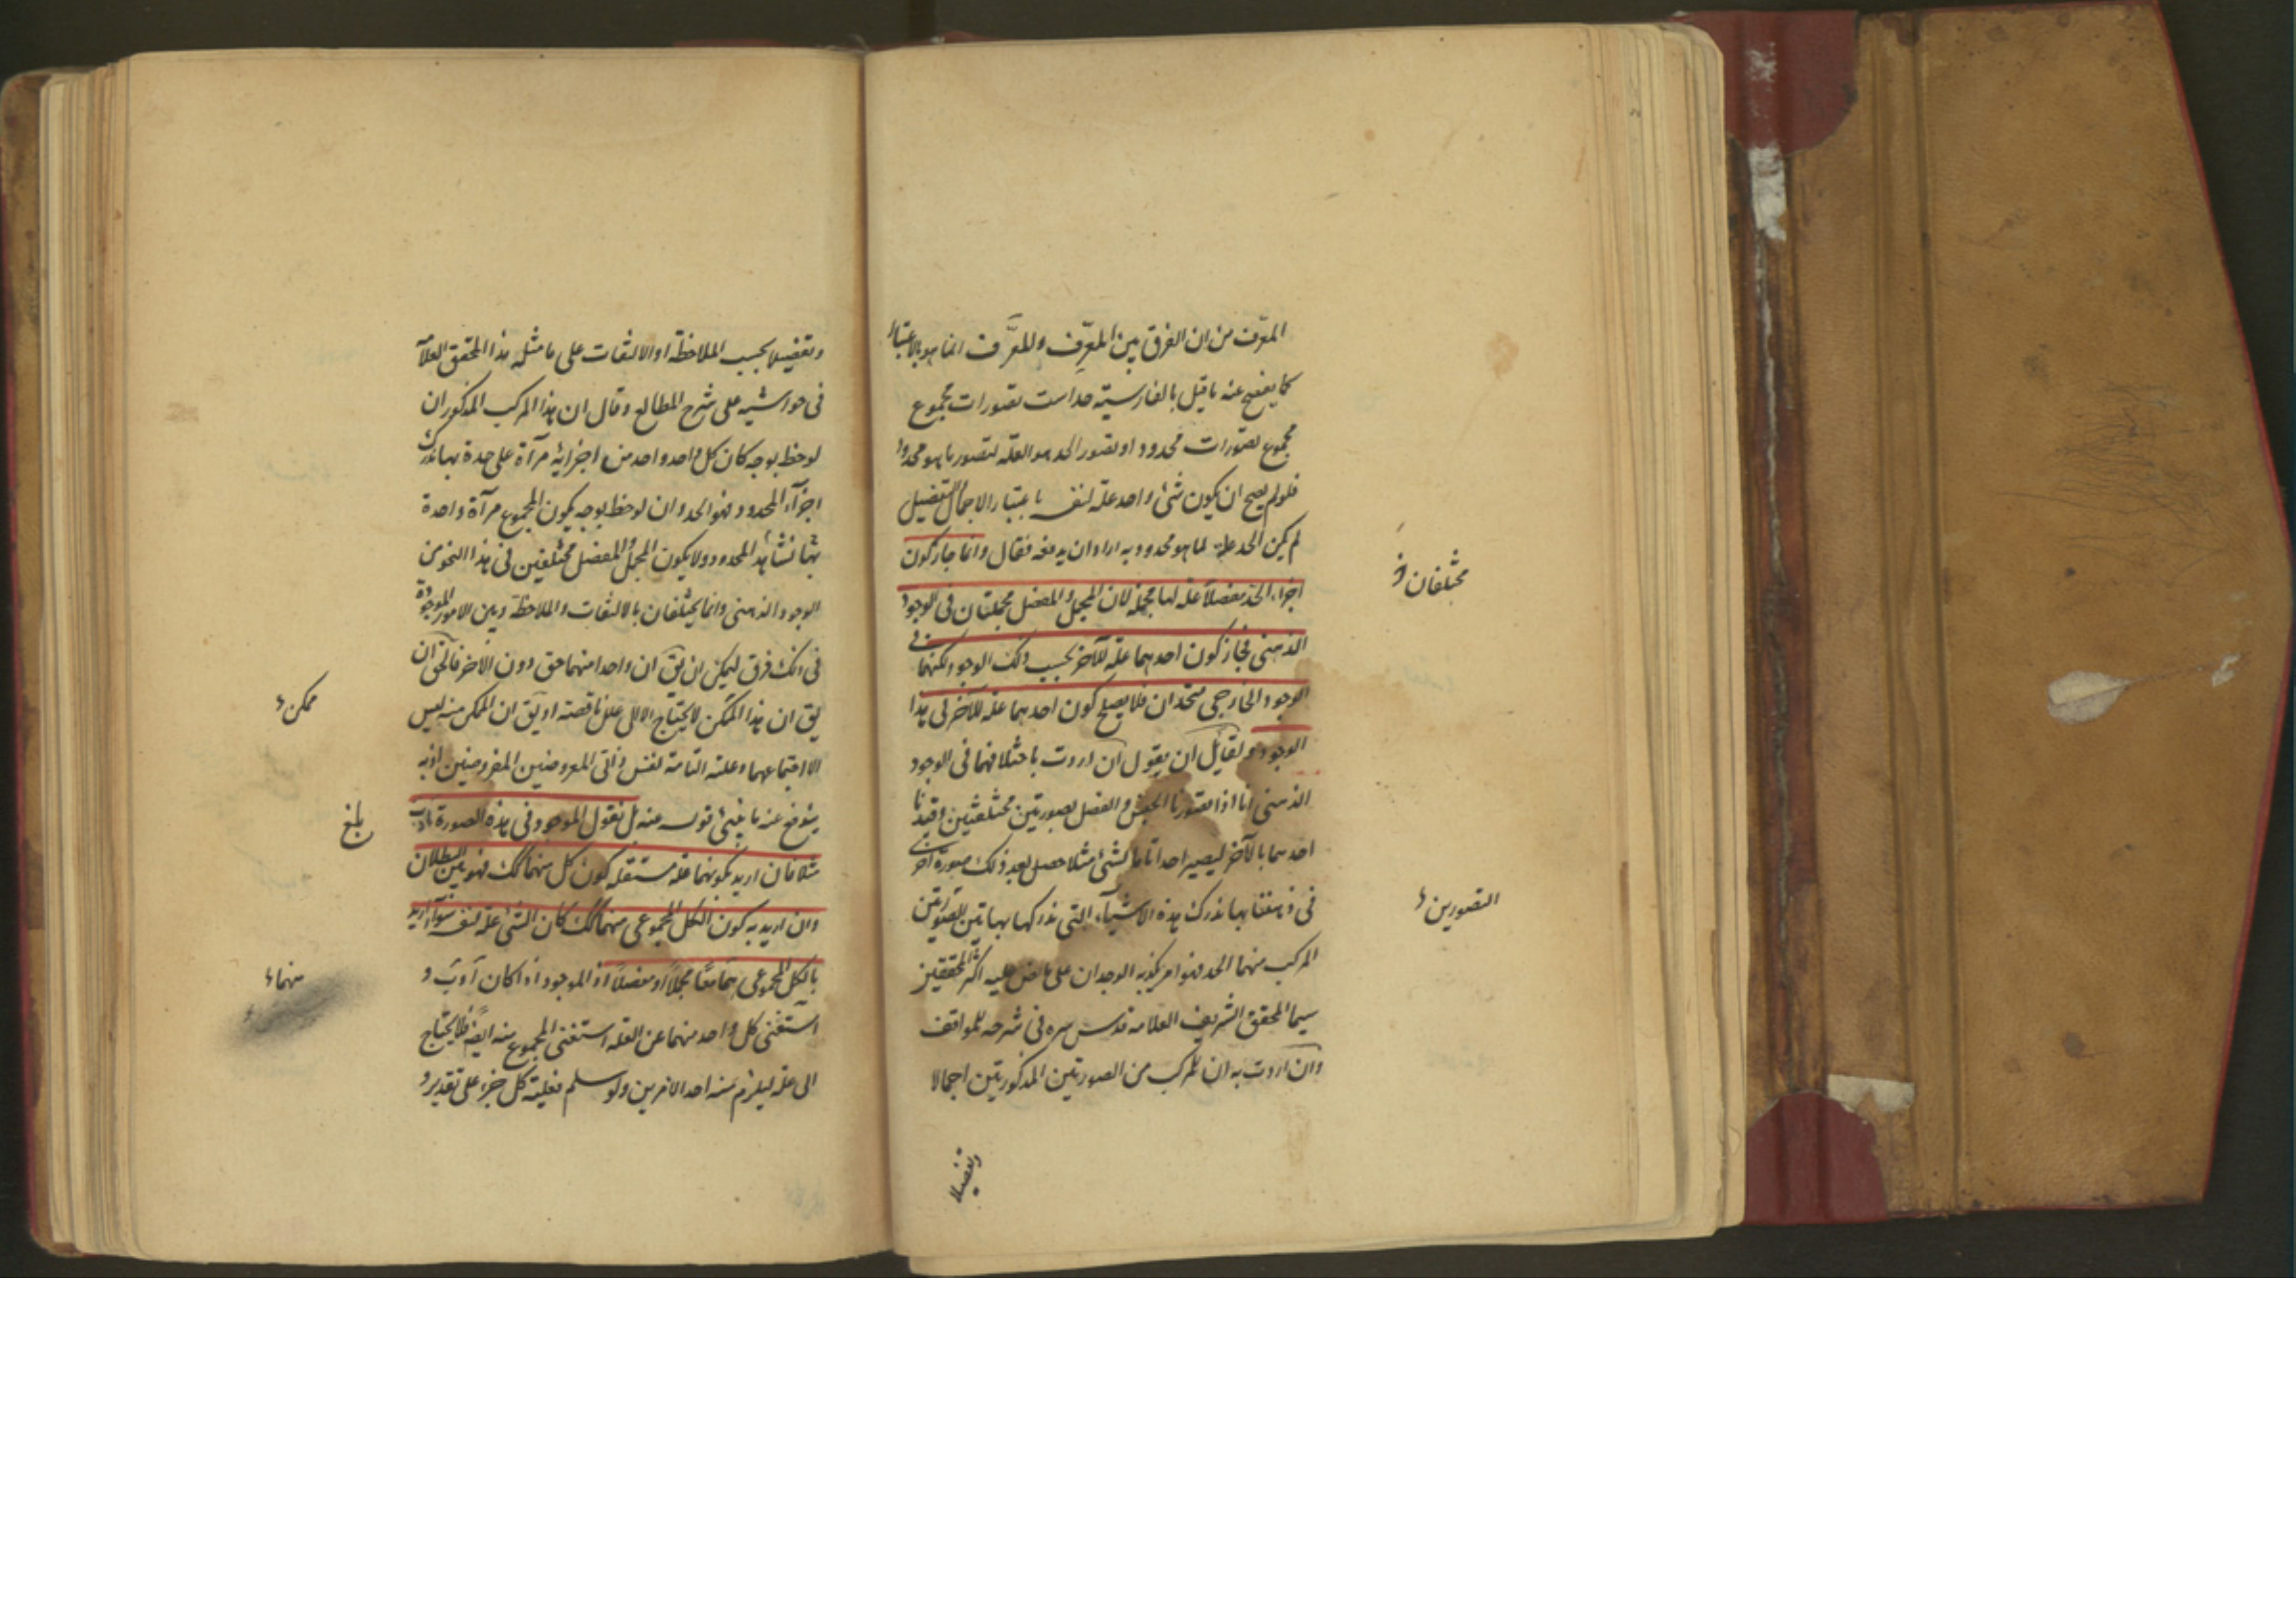 المعرّف من ان الفرق بين المعرِّف والمعرَّف انما هو بالاعتبار
كما يفصح عنه ما قيل بالفارسية حد است تصورات مجموع
مجموع تصورات محدود او تصور الحد هو العلة لتصور ما هو محدود
فلو لم يصح ان يكون شئ واحد علة لنفسه باعتبار الاجمال والتفضيل
لم يكن الحد علة لما هو محدود به اراد ان يدفعه فقال وانما جاز كون
اجزاء الحد مفصلاً علة لها مجملة لان المجمل والمفصل مختلفان فى الوجود
الذهنى فجاز كون احدهما علة للآخر بحسب ذلك الوجود ولكنهما فى
الوجود الخارجى متحدان فلا يصلح كون احدهما علة للآخر فى هذا
الوجود ولقايل ان يقول ان اردت باختلافهما فى الوجود
الذهنى انا اذا تصورنا الجنس والفصل بصورتين مختلفتين وقيدنا
احدهما بالآخر ليصير احدا تاما لشئ مثلا حصل بعد ذلك صورة اخرى
فى ذهننا بها ندرك هذه الاشياء التى ندركها بهاتين الصورتين
المركب منهما الحد فهو امر يكذبه الوجدان على ما نص عليه اكثر المحققين
سيما المحقق الشريف العلامة قدس سره فى شرحه للمواقف
وان اردت به ان المركب من الصورتين المذكورتين اجمالا
وتفضيلا
مختلفان
التصورين
وتفضيلا بحسب الملاحظة او الالتفات على ما مثله هذا المحقق العلاّمة
فى حواشيه على شرح المطالع وقال ان هذا المركب المذكور ان
لوحظ بوجه كان كل واحد واحد من اجزائه مرآة على حدة بها ندرك
اجزآء المحدود فهو الحد وان لوحظ بوجه يكون المجموع مرآة واحدة
بها نشاهد المحدود ولا يكون المجمل والمفصل مختلفين فى هذا النحو من
الوجود الذهنى وانما يختلفان بالالتفات والملاحظة وبين الامور الموجودة
فى ذلك فرق ليمكن ان يق ان واحدا منهما حق دون الآخر فالحق ان
يق ان هذا الممكن لا يحتاج الا الى علل ناقصة او يق ان الممكن منه ليس
الا اجتماعهما وعلته التامة نفس ذاتى المعروضين المفروضين اذ به
يندفع عنه ما ينبئ قوله عنه بل نقول الموجود فى هذه الصورة
مثلا فان اريد بكونهما علة مستقلة كون كل منهما كك فهو بين البطلان
وان اريد به كون الكل المجموعى منهما كك كان الشئ علة لنفسه سوآء اريد
بالكل المجموعى هما معًا مجملاً او مفصلاً اذ الموجود اذا كان آ و ب و
استغنى كل واحد منهما عن العلة استغنى المجموع منه ايضا فلا يحتاج
الى علة ليلزم منه احد الامرين ولو سلم فعلية كل جزء على تقدير
ممكن
بلغ
منهما